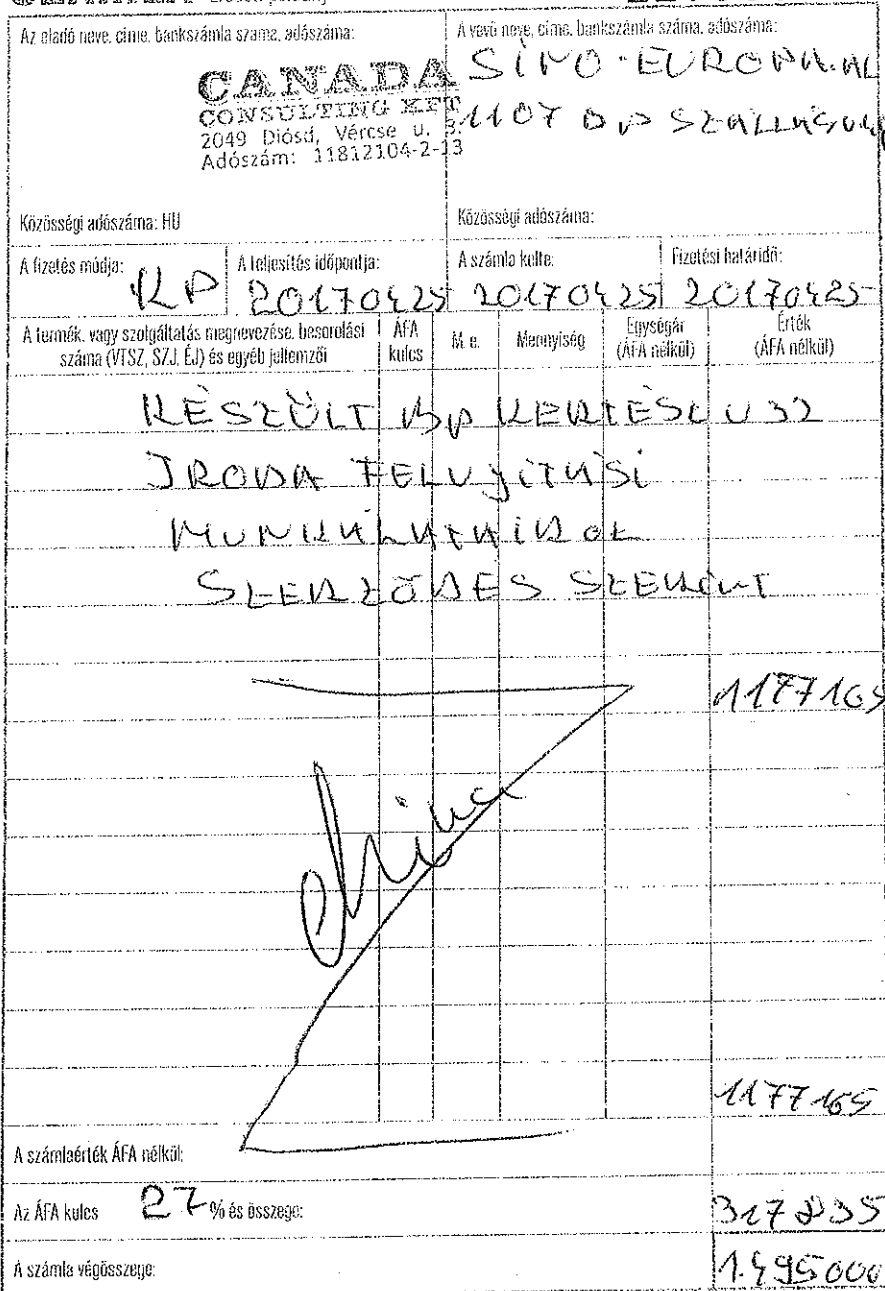 Az eladó neve, címe, bankszámla száma, adószáma:
CANADA
CONSULTING KFT
2049 Diósd, Vércse u. 3.
Adószám: 11812104-2-13
A vevő neve, címe, bankszámla száma, adószáma:
1107 BP SZÁLLÁS U.
Közösségi adószáma: HU
Közösségi adószáma:
A fizetés módja: KP
A teljesítés időpontja: 20170425
A számla kelte: 20170425
Fizetési határidő: 20170425
A termék, vagy szolgáltatás megnevezése, besorolási száma (VTSZ, SZJ, ÉJ) és egyéb jellemzői
ÁFA kulcs
M. e.
Mennyiség
Egységár (ÁFA nélkül)
Érték (ÁFA nélkül)
KÉSZÜLT BP KERTÉSZ U 32
IRODA FELUJÍTÁSI
MUNKÁLATAIROL
SZERZŐDÉS SZERINT
1177165
1177165
A számlaérték ÁFA nélkül:
Az ÁFA kulcs 27 % és összege: 317835
A számla végösszege: 1.495000